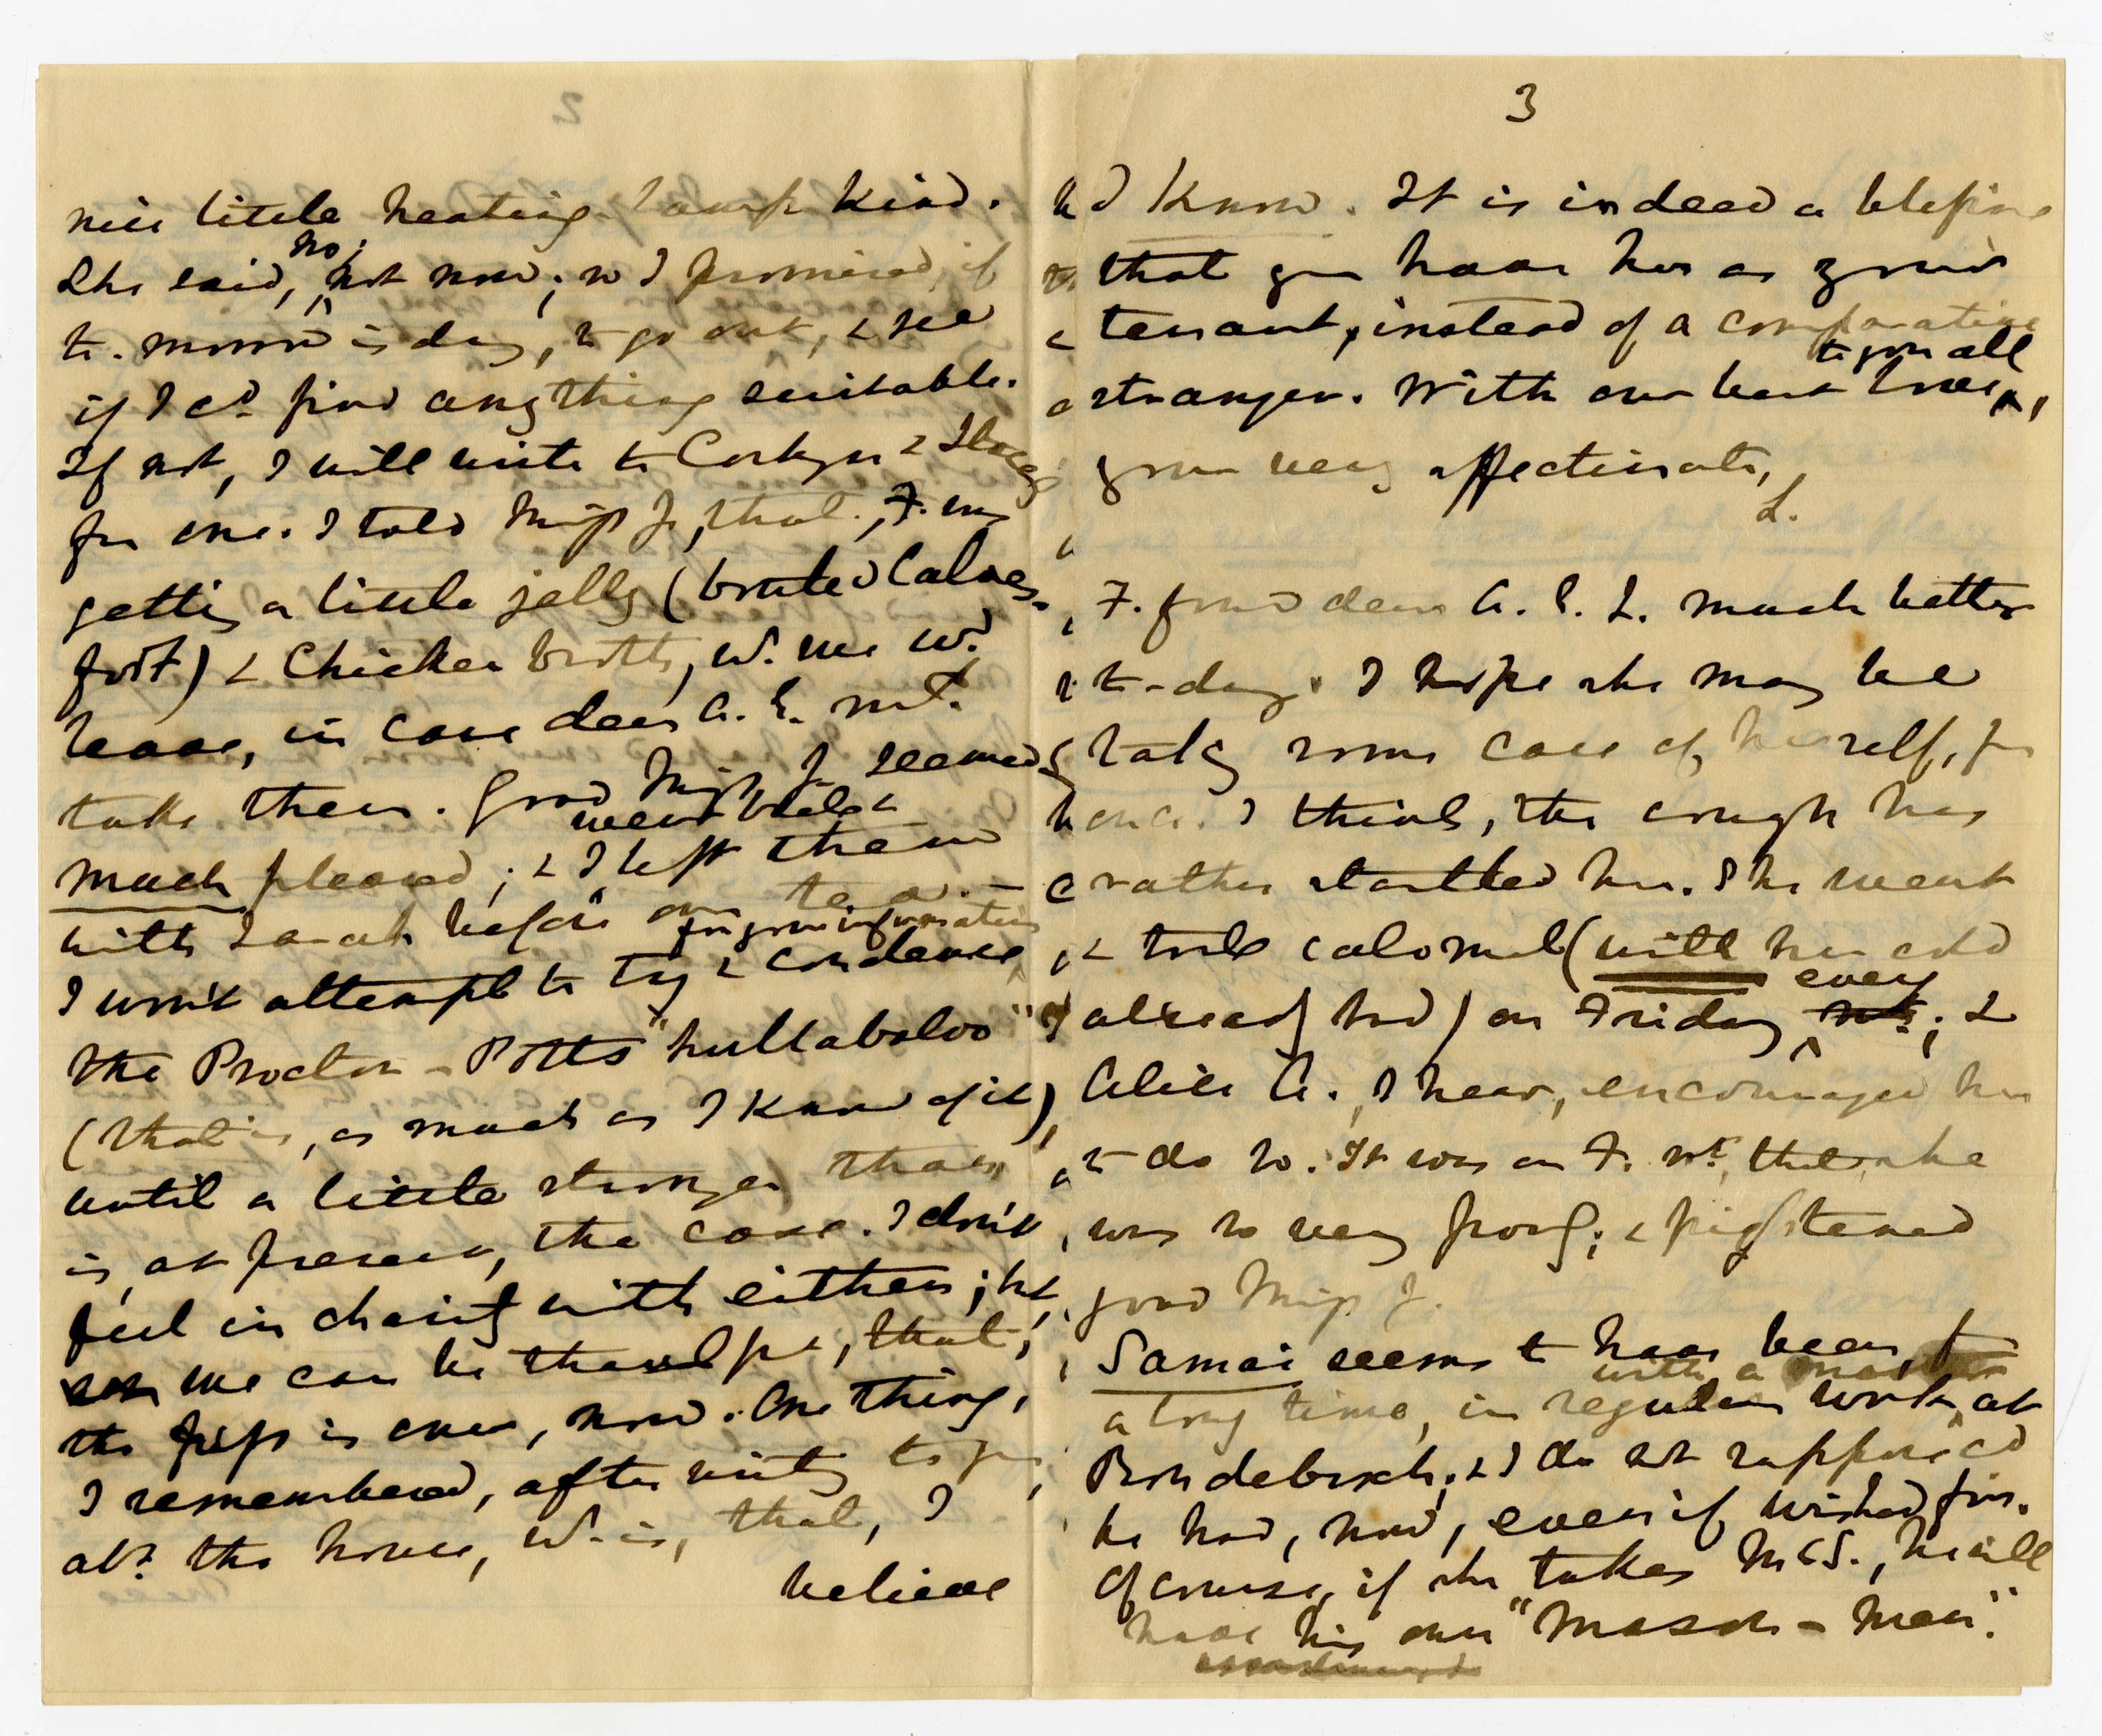 nice little heating-lamp kind.
She said, no; not now; so I promised, if
to-morrow is dry, to go out, & see
if I cd. find anything suitable.
If not, I will write to &
for one. I told Miss J, that, F. was
getting a little jelly (bratted Calves-
foot) & Chicken broth, w. we wd.
leave, in case dear A. E. mt.
take them. Good Miss J. seemed
much pleased; & I left them
went back
with Sarah before our tea. —
I won't attempt to try & condense for your information
the Proctor-Potts "hullabaloo"
(that is, as much as I know of it),
until a little stronger than
is, at present, the case. I don't
feel in charity with either; but,
we can be thankful, that,
the fuss is over, now. One thing,
I remembered, after writing to you
abt. the house, w. is, that, I
believe
3
I know. It is indeed a blessing
that you have her as your
tenant, instead of a comparative
stranger. With our best love to you all,
your very affectionate,
L.
F. found dear A. E. L. much better
to-day. I hope she may be
taking some care of herself, for
once. I think, the cough has
rather startled her. She went
& took calomel (with her cold
already bad) on Friday every; &
Alice A., I hear, encouraged her
to do so. It was on F. nt. that she
was so very poorly; & frightened
good Miss J.
Samai seems to have been, for
a long time, in regular work with a master at
Rondebosch; & I do not suppose cd
be had, now, even if wished for.
Of course, if she takes McS., he will
have his own "Mason-man".